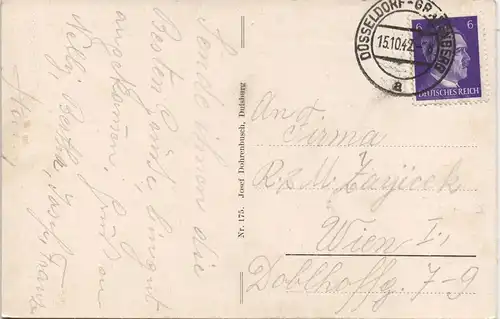 Sende ihnen die
Besten Grüße, bin gut
angekommen, Gruß an
Nelly, Bertha, Josef, Franz
Nr. 175. Josef Dohrenbusch, Duisburg
DÜSSELDORF-GRAFENBERG
15.10.42
a
6 6
DEUTSCHES REICH
An
Firma
R. & M. Zayicek
Wien I.,
Doblhoffg. 7-9